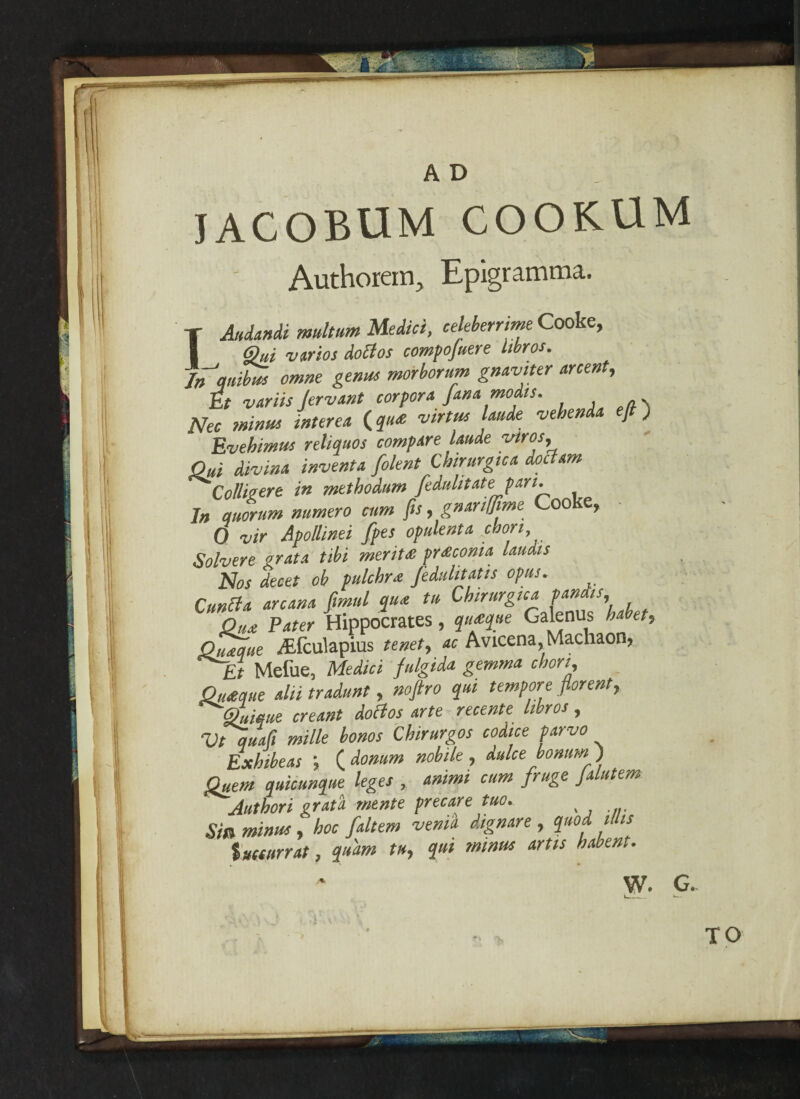 AD
JACOBUM COOKUM
Authorem, Epigramma.
LAudandi multum Medici, celeberrime Cooke,
Qui varios doctos composuere libros.
In quibus omne genus morborum gnaviter arcent,
Et variis servant corpora sana modis.
Nec minus interea (quæ virtus laude vehenda est)
Evehimus reliquos compare laude viros,
Qui divina inventa solent Chirurgica doctam
Colligere in methodum sedulitate pari.
In quorum numero cum sis, gnarissime Cooke,
O vir Apollinei spes opulenta chori,
Solvere grata tibi meritæ præconia laudis
Nos decet ob pulchræ sedulitatis opus.
Cuncta arcana simul quæ tu Chirurgica pandis,
Quæ Pater Hippocrates, quæque Galenus habet,
Quæque Æsculapius tenet, ac Avicena, Machaon,
Et Mesue, Medici fulgida gemma chori,
Quæque alii tradunt, nostro qui tempore florent,
Quique creant doctos arte recente libros,
Vt quasi mille bonos Chirurgos codice parvo
Exhibeas; (donum nobile, dulce bonum)
Quem quicunque leges, animi cum fruge salutem
Authori gratâ mente precare tuo.
Sin minus, hoc saltem veniâ dignare, quod illis
Succurrat, quàm tu, qui minus artis habent.
W. G.
TO